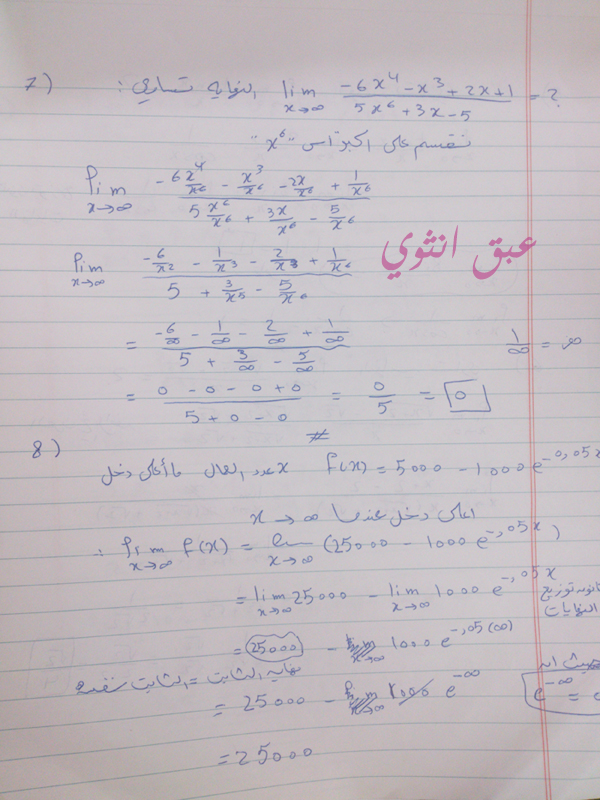 7) النهاية تساوي : lim x→∞ (-6x⁴ - x³ + 2x + 1)/(5x⁶ + 3x - 5) = ?
نقسم على اكبر اس "x⁶"
lim x→∞ (-6x⁴/x⁶ - x³/x⁶ - 2x/x⁶ + 1/x⁶)/(5x⁶/x⁶ + 3x/x⁶ - 5/x⁶)
عبق انثوي
lim x→∞ (-6/x² - 1/x³ - 2/x⁵ + 1/x⁶)/(5 + 3/x⁵ - 5/x⁶)
= (-6/∞ - 1/∞ - 2/∞ + 1/∞)/(5 + 3/∞ - 5/∞) 1/∞ = ∞
= (0 - 0 - 0 + 0)/(5 + 0 - 0) = 0/5 = 0
#
8) f(x) = 5000 - 1000 e^-0,05x x عدد العمال ما أعلى دخل
اعلى دخل عندما x → ∞
∴ lim x→∞ f(x) = lim x→∞ (25000 - 1000 e^-,05x)
= lim x→∞ 25000 - lim x→∞ 1000 e^-,05x توزيع
النهايات
= 25000 - 1000 e^-,05(∞)
نهاية الثابت = الثابت نفسه
= 25000 - 1000 e^-∞ e^-∞ =
= 25000